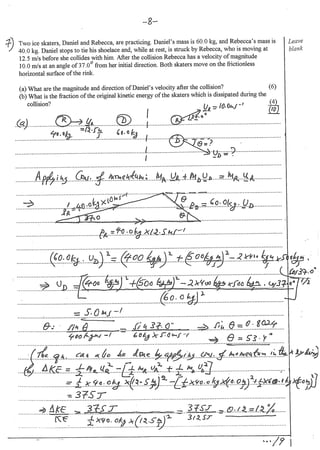 -8-
7) Two ice skaters, Daniel and Rebecca, are practicing. Daniel's mass is 60.0 kg, and Rebecca's mass is
40.0 kg. Daniel stops to tie his shoelace and, while at rest, is struck by Rebecca, who is moving at
12.5 m/s before she collides with him. After the collision Rebecca has a velocity of magnitude
10.0 m/s at an angle of 37.0° from her initial direction. Both skaters move on the frictionless
horizontal surface of the rink.
Leave
blank
(a) What are the magnitude and direction of Daniel's velocity after the collision? (6)
(b) What is the fraction of the original kinetic energy of the skaters which is dissipated during the
collision? (4)
(10)
(a) R → U_R D
40.0kg = 12.5 m/s 60.0kg
U_R = 10.0ms⁻¹
R 37.0°
D θ = ?
U_D = ?
Applying Cons. of momentum: M_R U_R + M_D U_D = M_R U_R
→ P_R = 40.0kg x 10ms⁻¹
θ P_D = 60.0kg. U_D
37.0 θ
P_R = 40.0kg x 12.5ms⁻¹
(60.0kg. U_D)² = (400 kgm/s)² + (500kgm/s)² - 2 x 400 kgm/s x 500kgm/s.
Cos37.0°
⇒ U_D = [(400 kgm/s)² + (500 kgm/s)² - 2x400 kgm/s x 500 kgm/s. Cos37.0° / (60.0kg)²]^1/2
= 5.0ms⁻¹
θ: Sin θ / 400kgms⁻¹ = Sin 37.0° / 60kg x 5.0ms⁻¹ → Sin θ = 0.8024
→ θ = 53.4°
(The qn. can also be done by applying cons. of momentum in the x & y
(b) ΔKE = ½ M_R U_R² - [½ M_R U_R² + ½ M_D U_D²]
= ½ x 40.0kg x (12.5 m/s)² - [½ x 40.0kg x (10.0 m/s)² + ½ x 60.0
= 375J
→ ΔKE / KE = 375J / ½ x 40.0kg x (12.5 m/s)² = 375J / 3125J = 0.12 = 12%
.../9